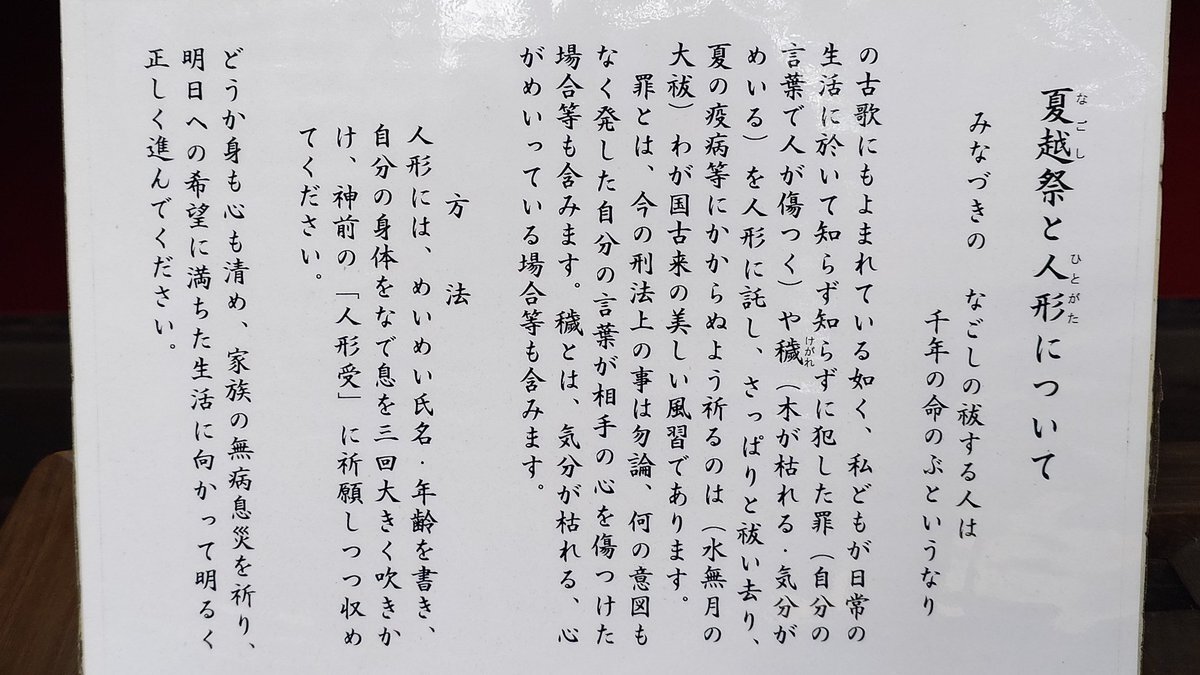 夏越祭と人形について
なごし
ひとがた
みなづきの　なごしの祓する人は
千年の命のぶというなり
の古歌にもよまれている如く、私どもが日常の
生活に於いて知らず知らずに犯した罪（自分の
言葉で人が傷つく）や穢（木が枯れる・気分が
けがれ
めいる）を人形に託し、さっぱりと祓い去り、
夏の疫病等にかからぬよう祈るのは（水無月の
大祓）わが国古来の美しい風習であります。
罪とは、今の刑法上の事は勿論、何の意図も
なく発した自分の言葉が相手の心を傷つけた
場合等も含みます。穢とは、気分が枯れる、心
がめいっている場合等も含みます。
方　法
人形には、めいめい氏名・年齢を書き、
自分の身体をなで息を三回大きく吹きか
け、神前の「人形受」に祈願しつつ収め
てください。
どうか身も心も清め、家族の無病息災を祈り、
明日への希望に満ちた生活に向かって明るく
正しく進んでください。